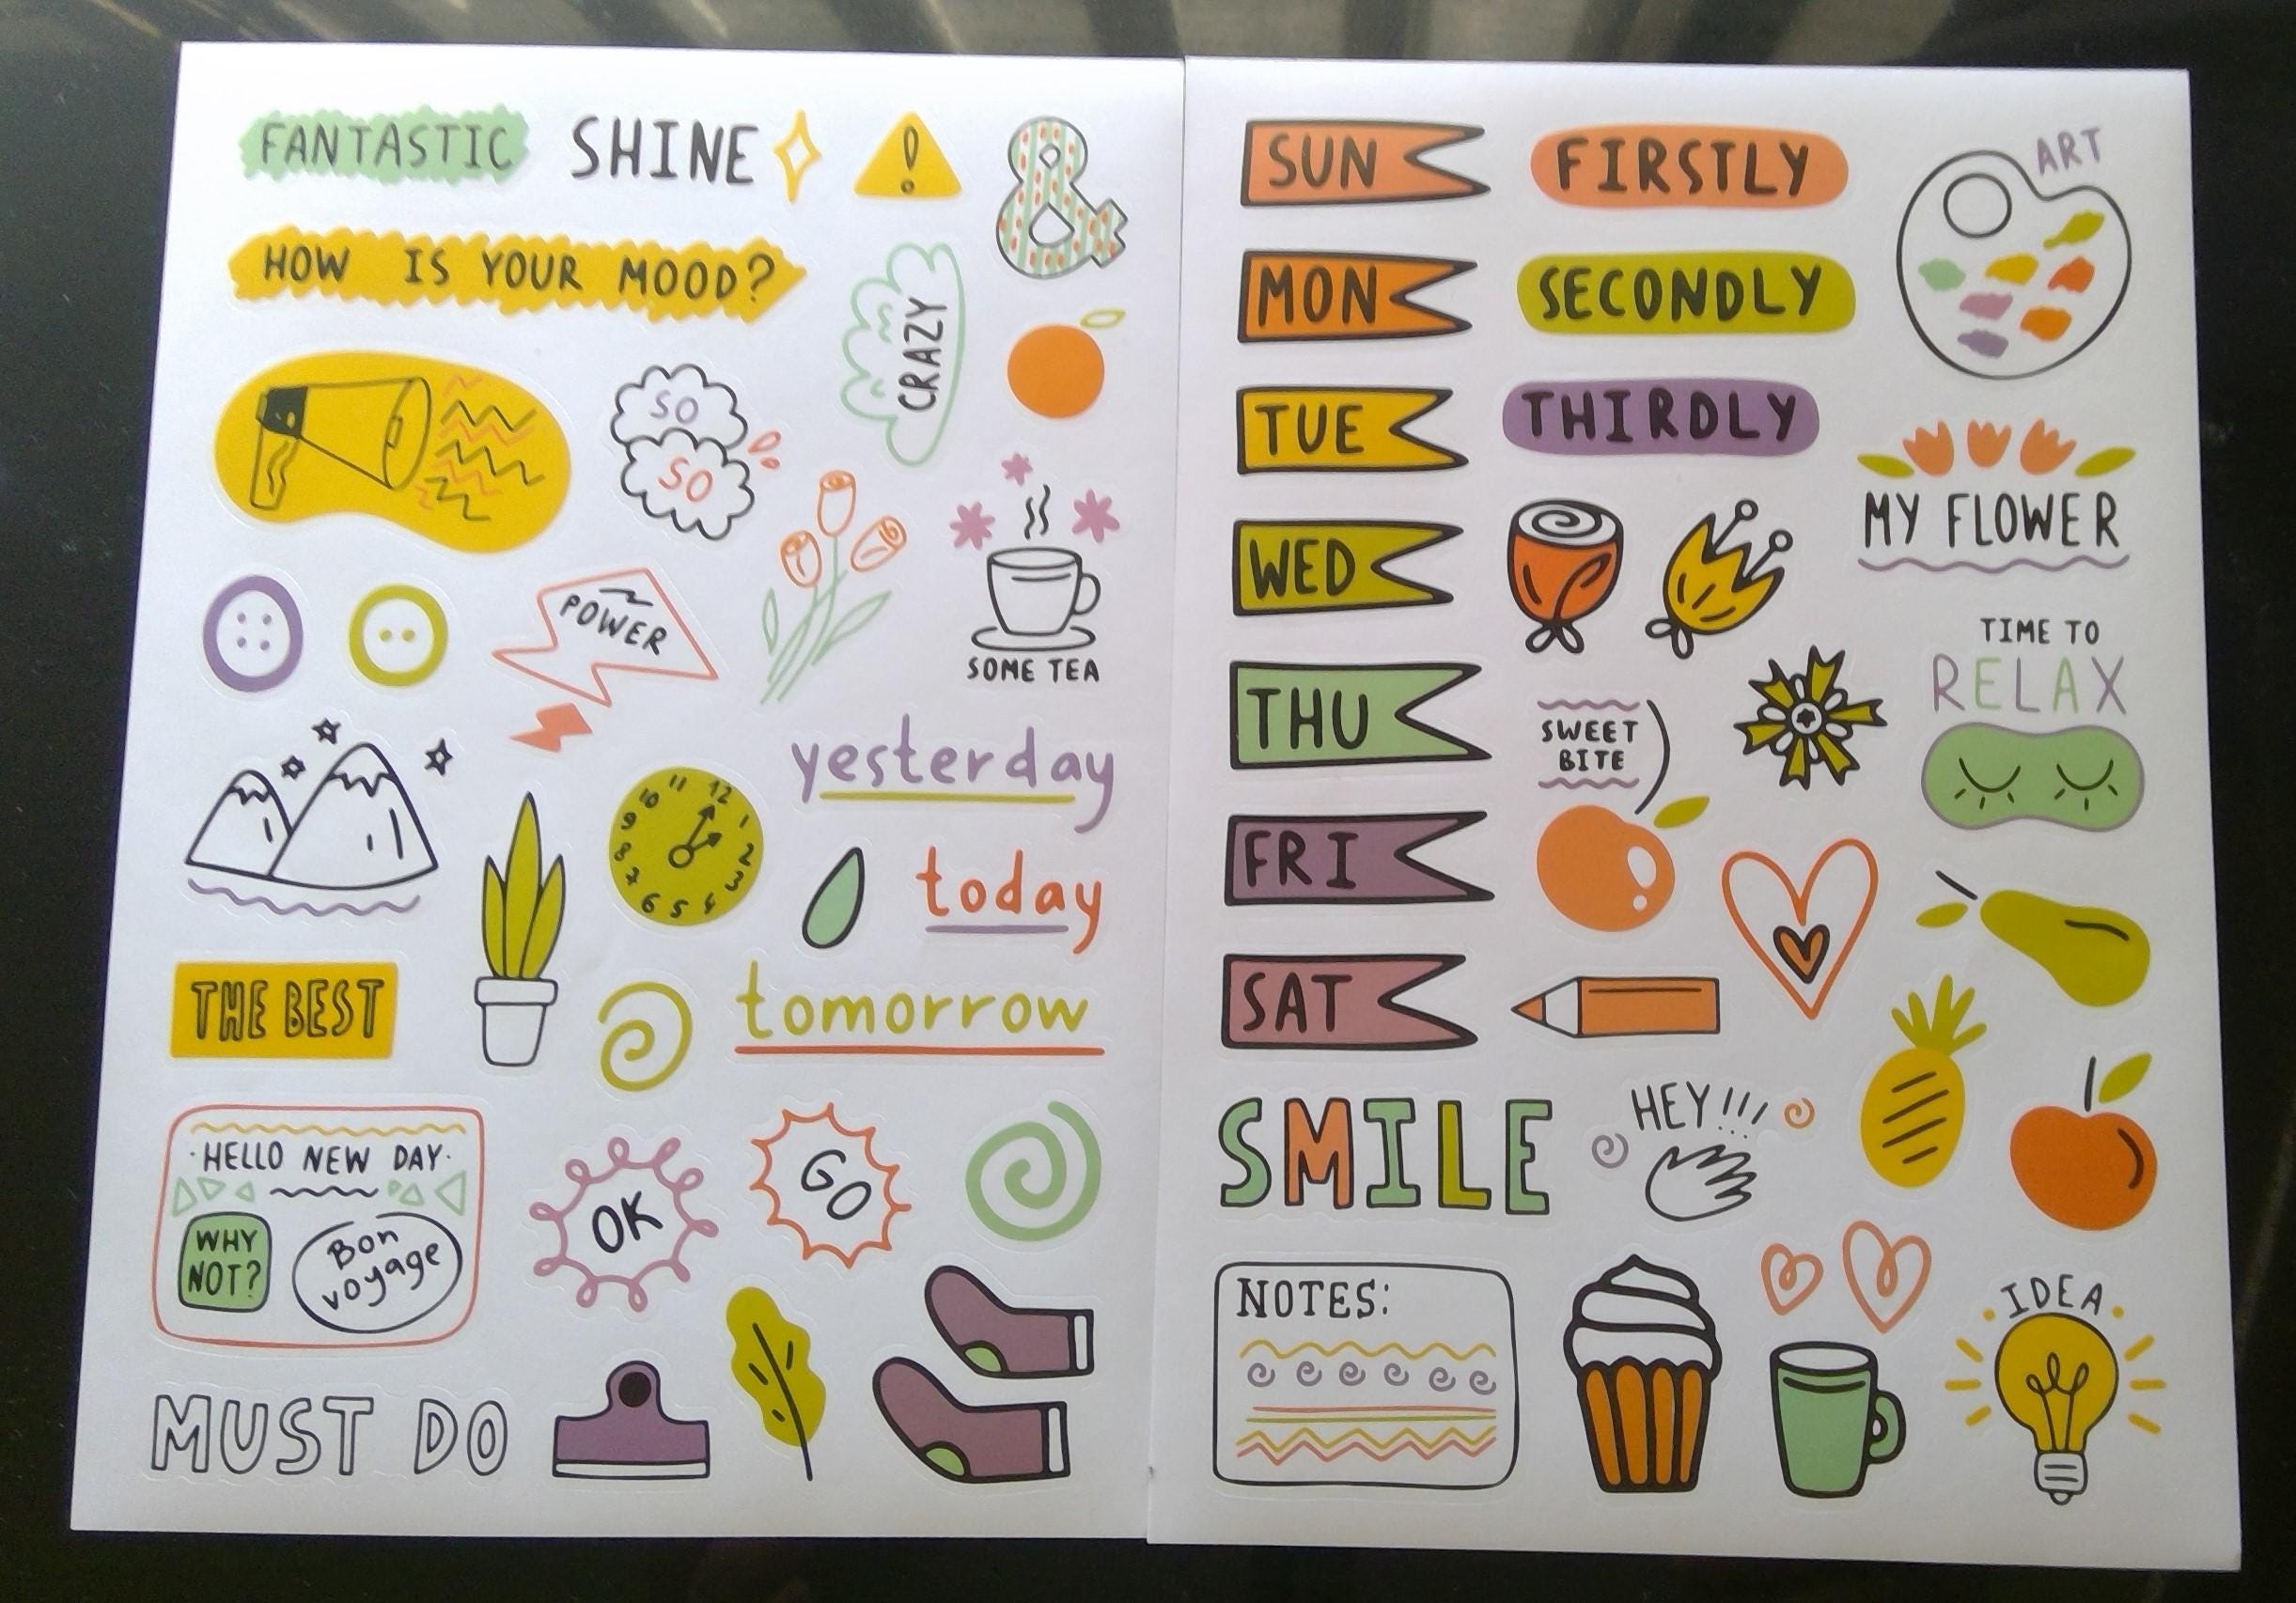 FANTASTIC
SHINE
!
&
HOW IS YOUR MOOD?
CRAZY
SO
SO
POWER
SOME TEA
yesterday
11 12
10 1
9 2
8 3
7 4
6 5
today
THE BEST
tomorrow
·HELLO NEW DAY·
WHY
NOT?
Bon
voyage
OK
GO
MUST DO
SUN
FIRSTLY
ART
MON
SECONDLY
TUE
THIRDLY
MY FLOWER
WED
TIME TO
RELAX
THU
SWEET
BITE
FRI
SAT
SMILE
HEY!!!
NOTES:
·IDEA·